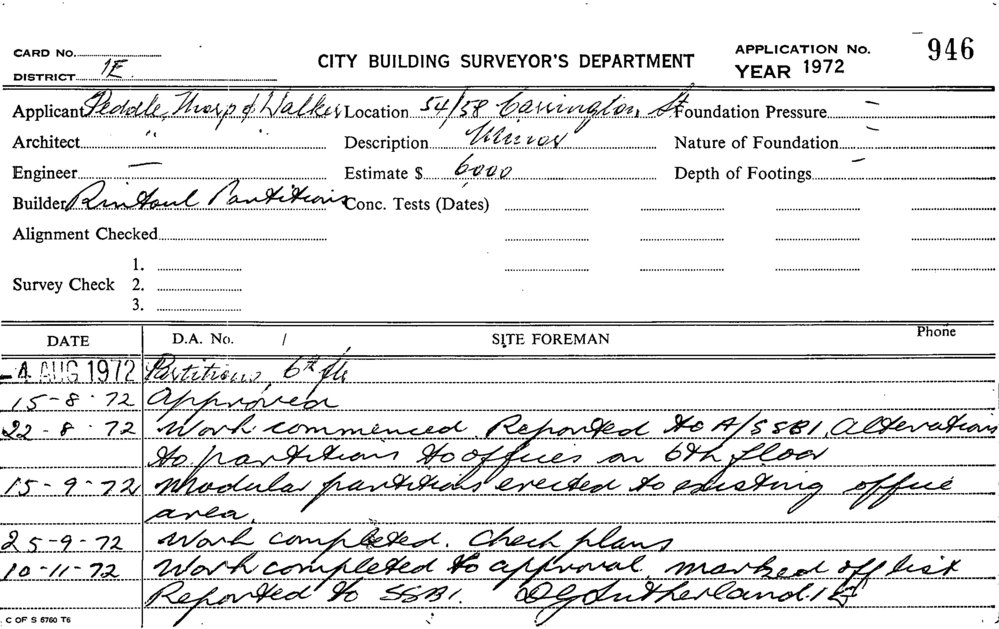 CARD No.
CITY BUILDING SURVEYOR'S DEPARTMENT
APPLICATION No. 946
DISTRICT 1E
YEAR 1972
Applicant Peddle, Thorp & Walker Location 54/58 Carrington St Foundation Pressure —
Architect " " Description Minor Nature of Foundation —
Engineer — Estimate $ 6000 Depth of Footings —
Builder Rintoul Partitions Conc. Tests (Dates)
Alignment Checked
1.
Survey Check 2.
3.
DATE D.A. No. / SITE FOREMAN Phone
- 4 AUG 1972 Partitions, 6th flr
15-8-72 Approved
22-8-72 Work commenced. Reported to A/SSBI. Alterations
to partitions to offices on 6th floor
15-9-72 Modular partitions erected to existing office
area.
25-9-72 Work completed. Check plans
10-11-72 Work completed to approval. marked off list
Reported to SSBI. DG Sutherland. 1E
C OF S 6760 T6